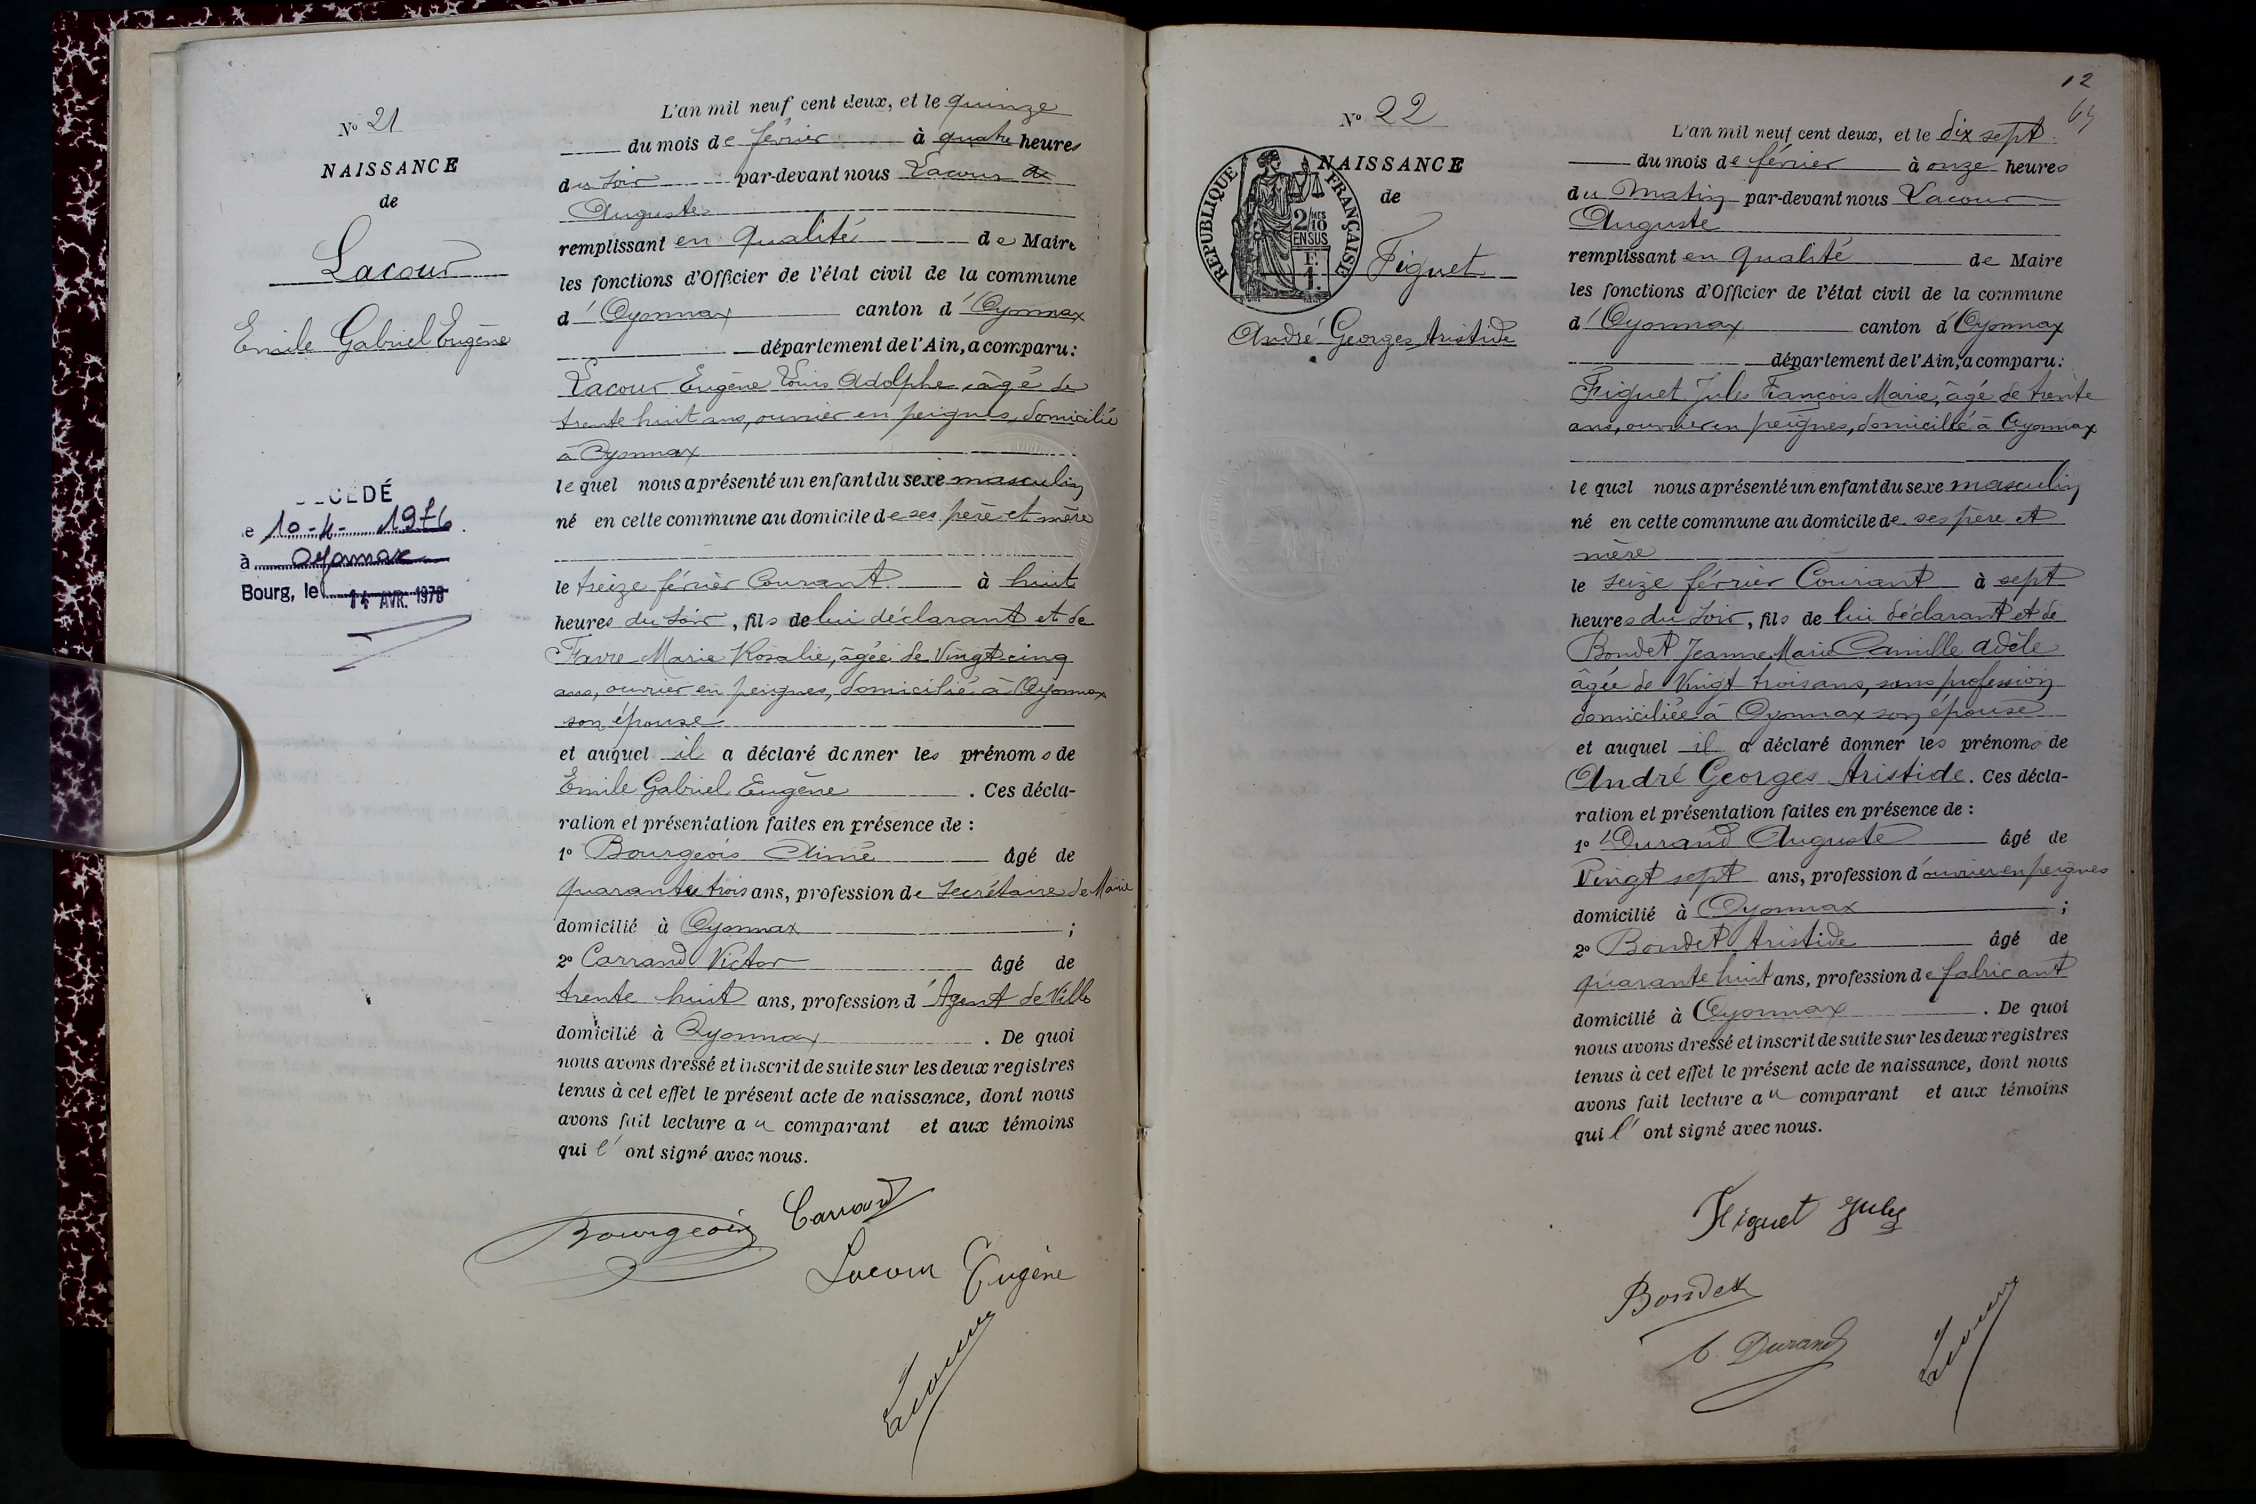 No 21
NAISSANCE
de
Lacour
Emile Gabriel Eugène
DÉCÉDÉ
le 10-4-1976
à Oyonnax
Bourg, le 14 AVR. 1976
L'an mil neuf cent deux, et le quinze
du mois de février à quatre heures
du soir par-devant nous Lacour
Auguste
remplissant en qualité de Maire
les fonctions d'Officier de l'état civil de la commune
d'Oyonnax canton d'Oyonnax
département de l'Ain, a comparu:
Lacour Eugène Louis Adolphe, âgé de
trente huit ans, ouvrier en peignes, domicilié
à Oyonnax
lequel nous a présenté un enfant du sexe masculin
né en cette commune au domicile de ses père et mère
le treize février Courant à huit
heures du soir, fils de lui déclarant et de
Favre Marie Rosalie, âgée de Vingt cinq
ans, ouvrier en peignes, domicilié à Oyonnax
son épouse
et auquel il a déclaré donner les prénoms de
Emile Gabriel Eugène. Ces décla-
ration et présentation faites en présence de :
1o Bourgeois Aimé âgé de
quarante trois ans, profession de Secrétaire de Mairie
domicilié à Oyonnax ;
2o Carrand Victor âgé de
trente huit ans, profession d'Agent de Ville
domicilié à Oyonnax. De quoi
nous avons dressé et inscrit de suite sur les deux registres
tenus à cet effet le présent acte de naissance, dont nous
avons fait lecture au comparant et aux témoins
qui l'ont signé avec nous.
Bourgeois Carrand
Lacour Eugène
Lacour
12
No 22
NAISSANCE
de
RÉPUBLIQUE FRANÇAISE
2/10 MES
EN SUS
F.
1.
Figuet
André Georges Aristide
L'an mil neuf cent deux, et le dix sept
du mois de février à onze heures
du Matin par-devant nous Lacour
Auguste
remplissant en qualité de Maire
les fonctions d'Officier de l'état civil de la commune
d'Oyonnax canton d'Oyonnax
département de l'Ain, a comparu:
Figuet Jules François Marie, âgé de trente
ans, ouvrier en peignes, domicilié à Oyonnax
lequel nous a présenté un enfant du sexe masculin
né en cette commune au domicile de ses père et
mère
le seize février Courant à sept
heures du soir, fils de lui déclarant et de
Bondet Jeanne Marie Camille Adèle
âgée de Vingt trois ans, sans profession
domiciliée à Oyonnax son épouse
et auquel il a déclaré donner les prénoms de
André Georges Aristide. Ces décla-
ration et présentation faites en présence de :
1o Durand Auguste âgé de
Vingt sept ans, profession d'ouvrier en peignes
domicilié à Oyonnax ;
2o Bondet Aristide âgé de
quarante huit ans, profession de fabricant
domicilié à Oyonnax. De quoi
nous avons dressé et inscrit de suite sur les deux registres
tenus à cet effet le présent acte de naissance, dont nous
avons fait lecture au comparant et aux témoins
qui l'ont signé avec nous.
Figuet Jules
Bondet
Durand
Lacour